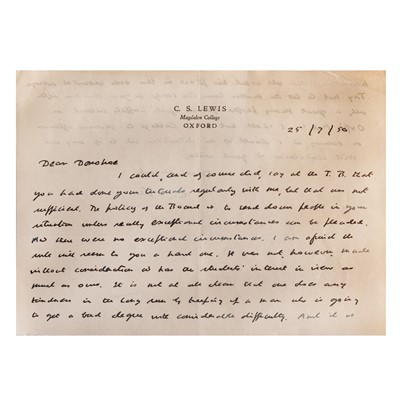 C. S. LEWIS
Magdalen College
OXFORD
25/7/50
Dear Donohoe
I could, and of course did, say at the T. B. that
you had done your tutorials regularly with me, but that was not
sufficient. The policy of the Board is to send down people in your
situation unless really exceptional circumstances can be pleaded.
And there were no exceptional circumstances. I am afraid the
rule will seem to you a hard one. It was not, however, made
without consideration &amp; has the students' interest in view as
much as ours. It is not at all clear that one does any
kindness in the long run by keeping up a man who is going
to get a bad degree with considerable difficulty. And it is